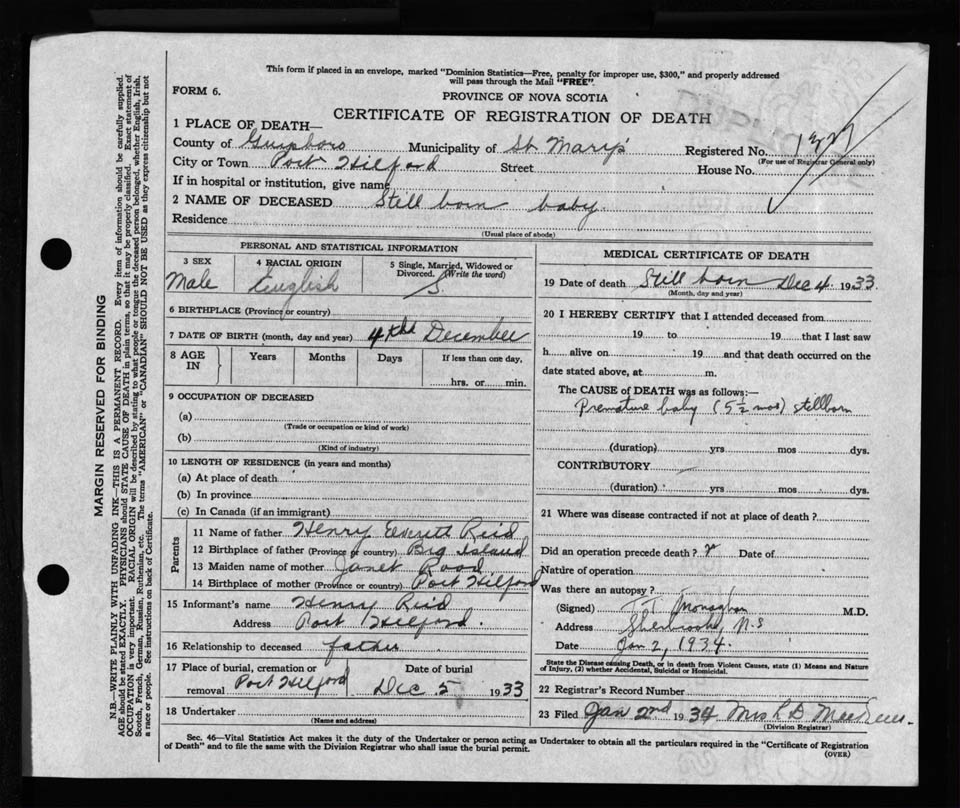 This form if placed in an envelope, marked "Dominion Statistics—Free, penalty for improper use, $300," and properly addressed
will pass through the Mail "FREE".
FORM 6.
PROVINCE OF NOVA SCOTIA
CERTIFICATE OF REGISTRATION OF DEATH
1 PLACE OF DEATH—
County of Guysboro Municipality of St Mary's Registered No.
(For use of Registrar General only)
City or Town Port Hilford Street House No.
If in hospital or institution, give name
2 NAME OF DECEASED Still born baby
Residence
(Usual place of abode)
PERSONAL AND STATISTICAL INFORMATION
3 SEX 4 RACIAL ORIGIN 5 Single, Married, Widowed or
Divorced. (Write the word)
Male English S
6 BIRTHPLACE (Province or country)
7 DATE OF BIRTH (month, day and year) 4th December
8 AGE IN Years Months Days If less than one day,
hrs. or min.
9 OCCUPATION OF DECEASED
(a)
(Trade or occupation or kind of work)
(b)
(Kind of industry)
10 LENGTH OF RESIDENCE (in years and months)
(a) At place of death
(b) In province
(c) In Canada (if an immigrant)
Parents
11 Name of father Henry Everett Reid
12 Birthplace of father (Province or country) Big Island
13 Maiden name of mother Janet Rood
14 Birthplace of mother (Province or country) Port Hilford
15 Informant's name Henry Reid
Address Port Hilford.
16 Relationship to deceased father
17 Place of burial, cremation or Date of burial
removal Port Hilford Dec 5 1933
18 Undertaker
(Name and address)
MEDICAL CERTIFICATE OF DEATH
19 Date of death Still born Dec 4 1933
(Month, day and year)
20 I HEREBY CERTIFY that I attended deceased from
19 to 19 that I last saw
h alive on 19 and that death occurred on the
date stated above, at m.
The CAUSE of DEATH was as follows:—
Premature baby (5½ mos) stillborn
(duration) yrs mos dys.
CONTRIBUTORY
(duration) yrs mos dys.
21 Where was disease contracted if not at place of death?
Did an operation precede death? Date of
Nature of operation
Was there an autopsy?
(Signed) Monaghan M.D.
Address Sherbrooke, N.S
Date Jan 2, 1934.
State the Disease causing Death, or in death from Violent Causes, state (1) Means and Nature
of Injury, (2) whether Accidental, Suicidal or Homicidal.
22 Registrar's Record Number
23 Filed Jan 2nd 1934 Mrs R D
(Division Registrar)
Sec. 46—Vital Statistics Act makes it the duty of the Undertaker or person acting as Undertaker to obtain all the particulars required in the "Certificate of Registration
of Death" and to file the same with the Division Registrar who shall issue the burial permit.
(OVER)
MARGIN RESERVED FOR BINDING
N.B.—WRITE PLAINLY WITH UNFADING INK—THIS IS A PERMANENT RECORD. Every item of information should be carefully supplied.
AGE should be stated EXACTLY. PHYSICIANS should STATE CAUSE OF DEATH in plain terms, so that it may be properly classified. Exact statement of
OCCUPATION is very important. RACIAL ORIGIN will be described by stating to what people or tongue the deceased person belonged, whether English, Irish,
Scotch, French, German, Russian, Ruthenian, etc. The terms "AMERICAN" or "CANADIAN" SHOULD NOT BE USED as they express citizenship but not
a race or people. See instructions on back of Certificate.